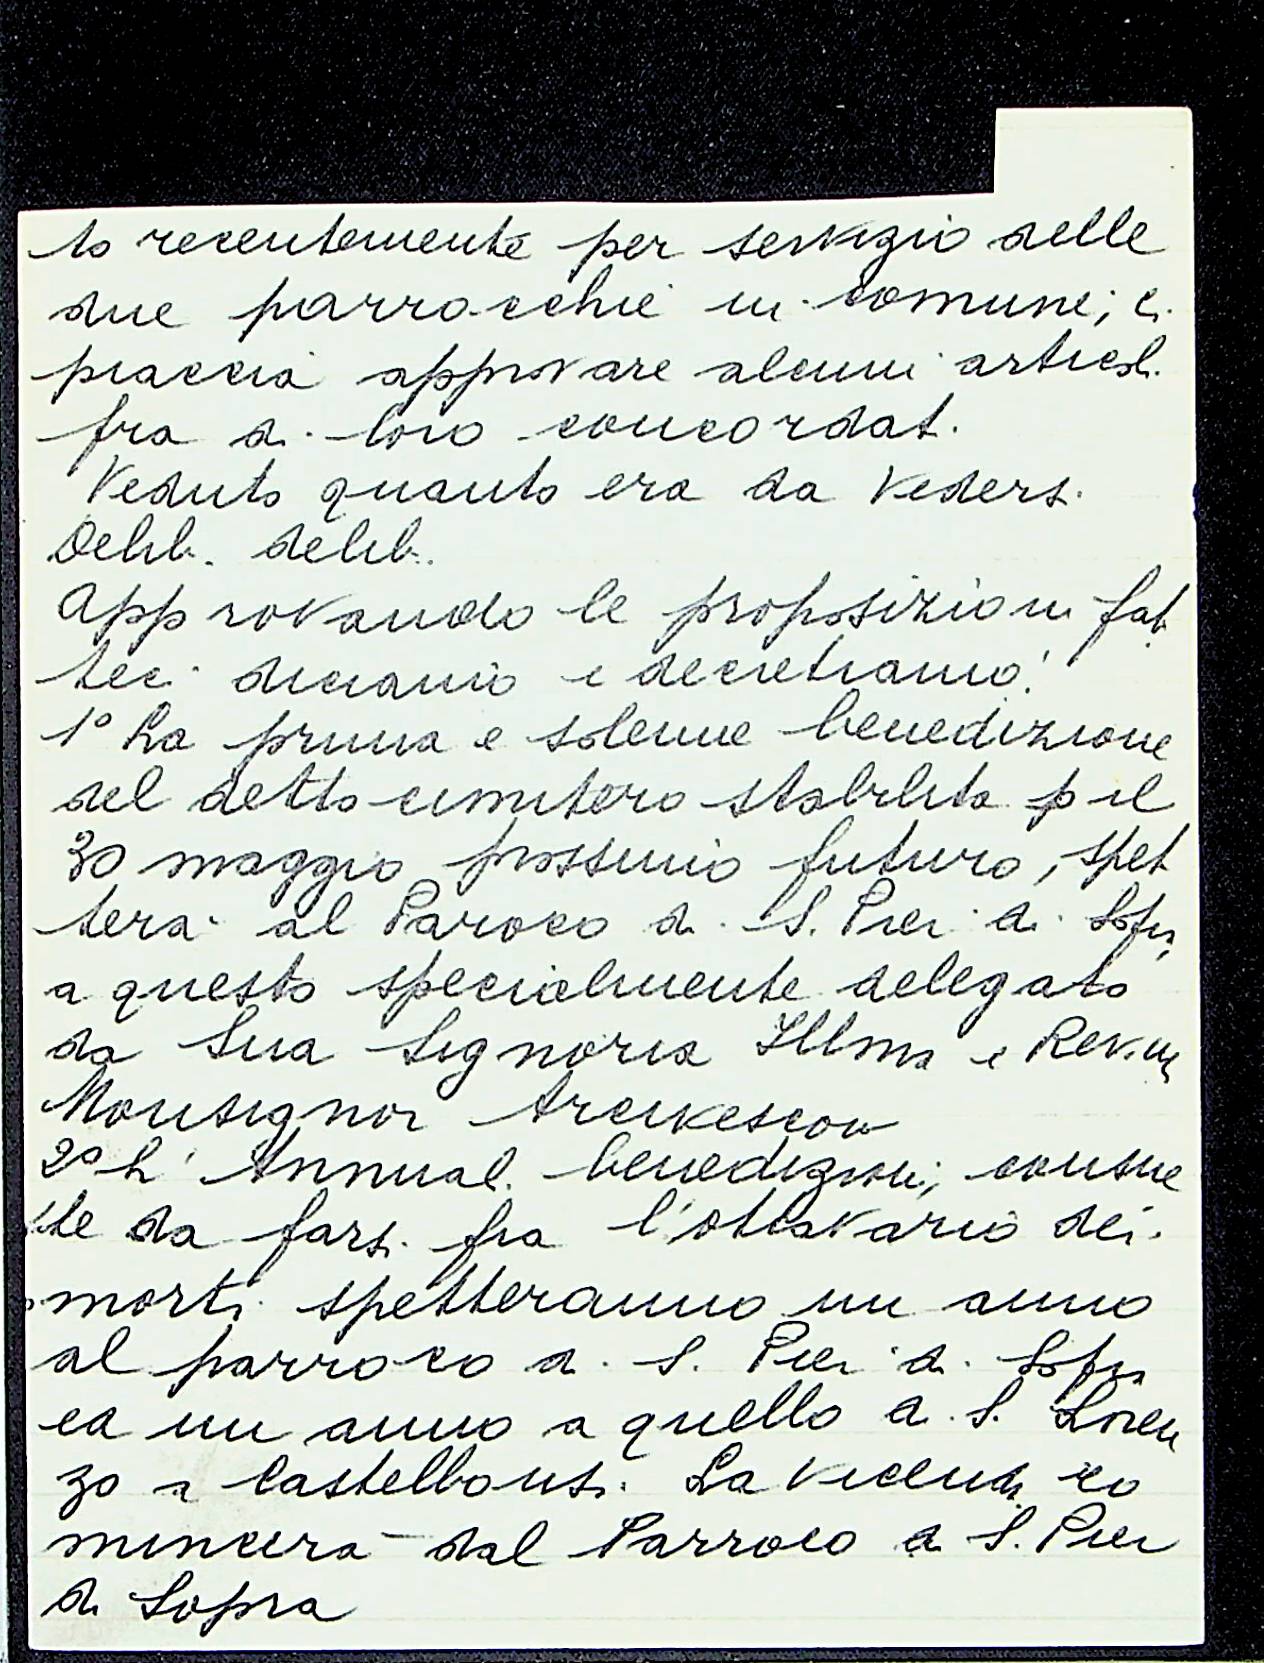 to recentemente per servizio delle
due parrocchie in comune; ci
piaccia approvare alcuni articoli
fra di loro concordati.
Veduto quanto era da vedersi
Delib. delib.
Approvando le proposizioni fat
teci diciamo e decretiamo:
1° La prima e solenne benedizione
del detto cimitero stabilita p il
30 maggio prossimo futuro, spet
terà al Paroco di S. Pier di Sopra
a questo specialmente delegato
da Sua Signoria Illma e Rev.ma
Monsignor Arcivescovo
2° L'Annuali benedizioni, consue
te da farsi fra l'ottavario dei
morti spetteranno un anno
al parroco di S. Pier di Sopra
ed un anno a quello di S. Loren
zo a Castelbonsi. La vicenda co
mincerà dal Parroco di S. Pier
di Sopra